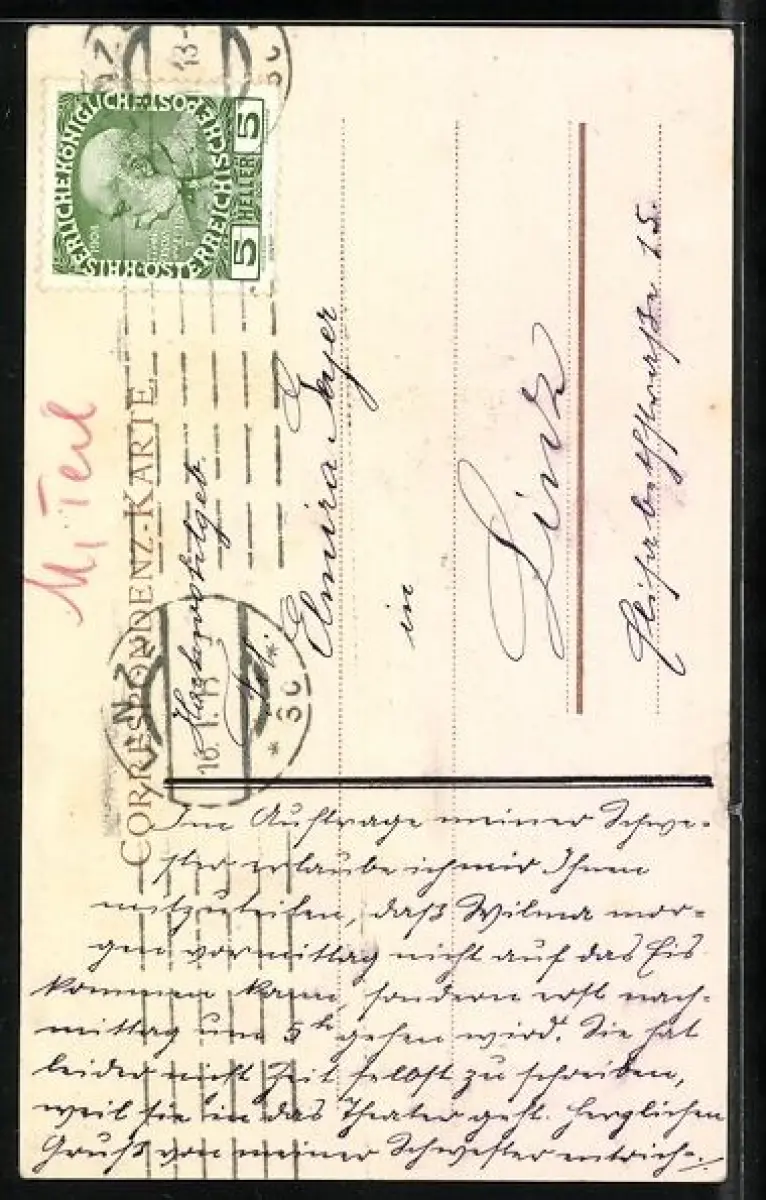 KAISERLICHE KÖNIGLICHE ÖSTERREICHISCHE POST
1908
5 HELLER 5
CORRESPONDENZ-KARTE
Elmira
in
Linz
Elisabethstraße 15.
16. I. 13
* 3c *
Im Auftrage meiner Schwe-
ster erlaube ich mir Ihnen
mitzuteilen, daß Wilma mor-
gen vormittag nicht auf das Eis
kommen kann, sondern erst nach-
mittag um 5h gehen wird. Sie hat
leider nicht Zeit selbst zu schreiben,
weil sie in das Theater geht. Herzlichen
Gruß von meiner Schwester entrich-